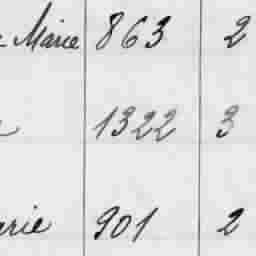 Marie 863 2
1322 3
arie 901 2